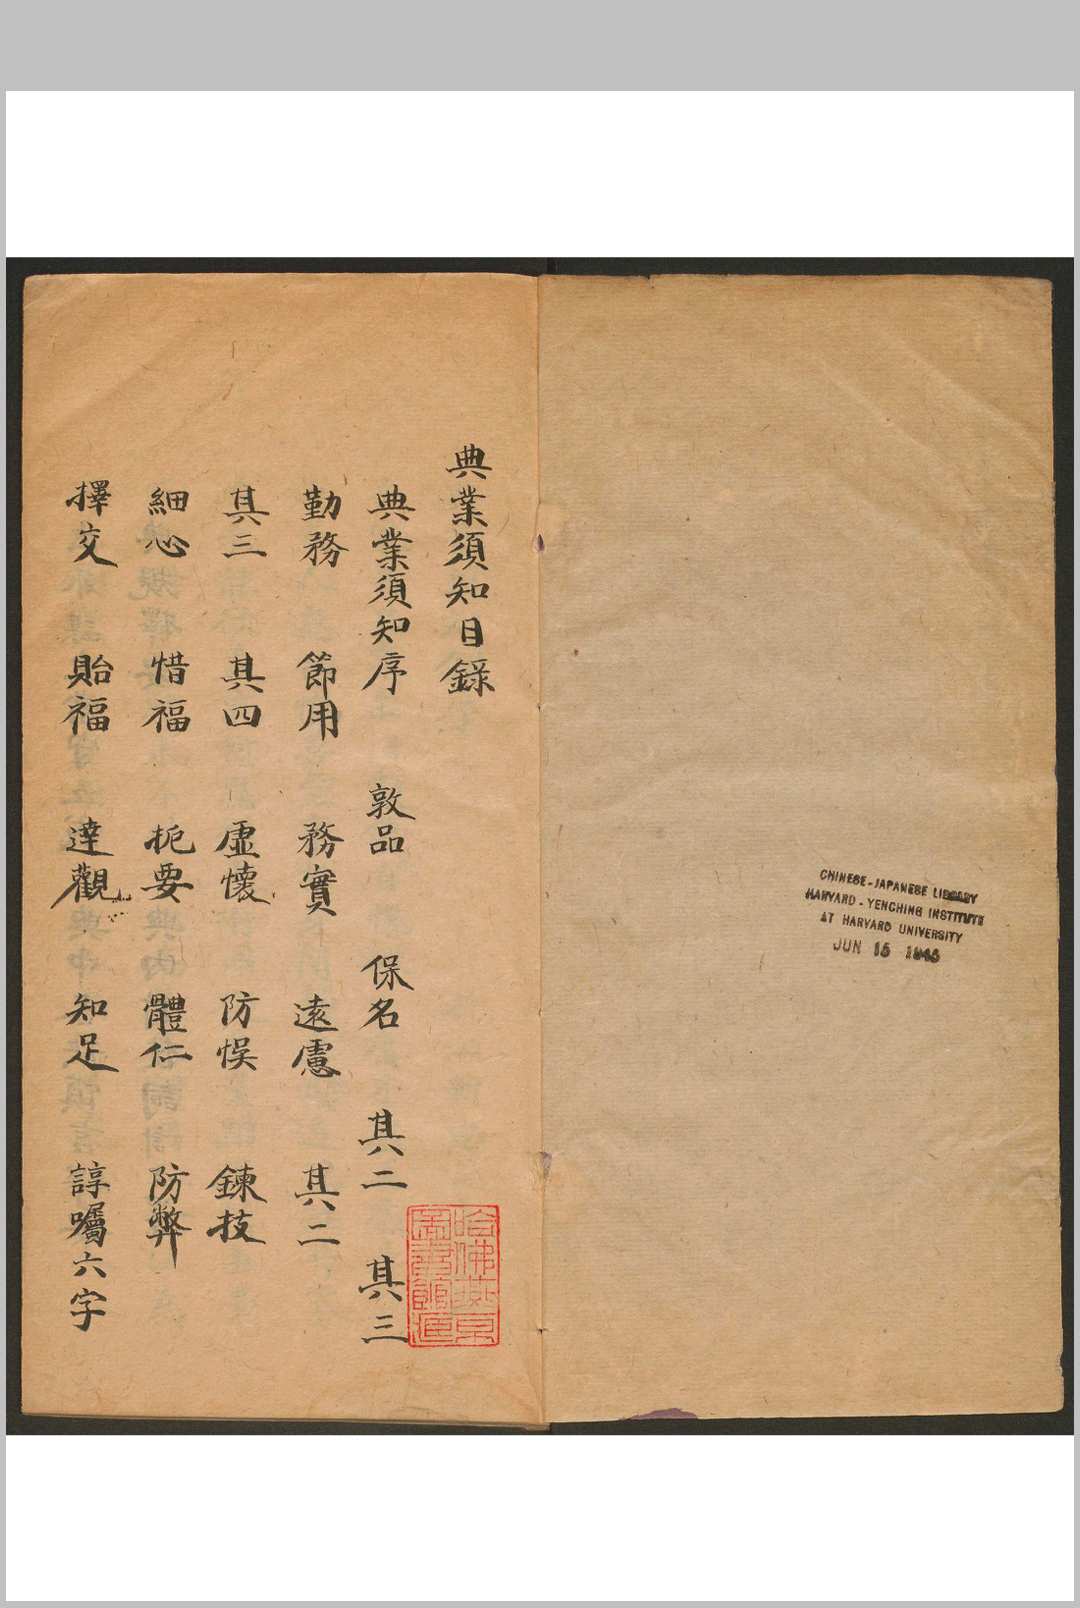 CHINESE-JAPANESE LIBRARY
HARVARD-YENCHING INSTITUTE
AT HARVARD UNIVERSITY
JUN 15 1946
典業須知目錄
典業須知序 敦品 保名 其二 其三
勤務 節用 務實 遠慮 其二
其三 其四 虛懷 防悞 鍊技
細心 惜福 扼要 體仁 防弊
擇交 貽福 達觀 知足 諄囑六字
哈佛燕京
圖書館